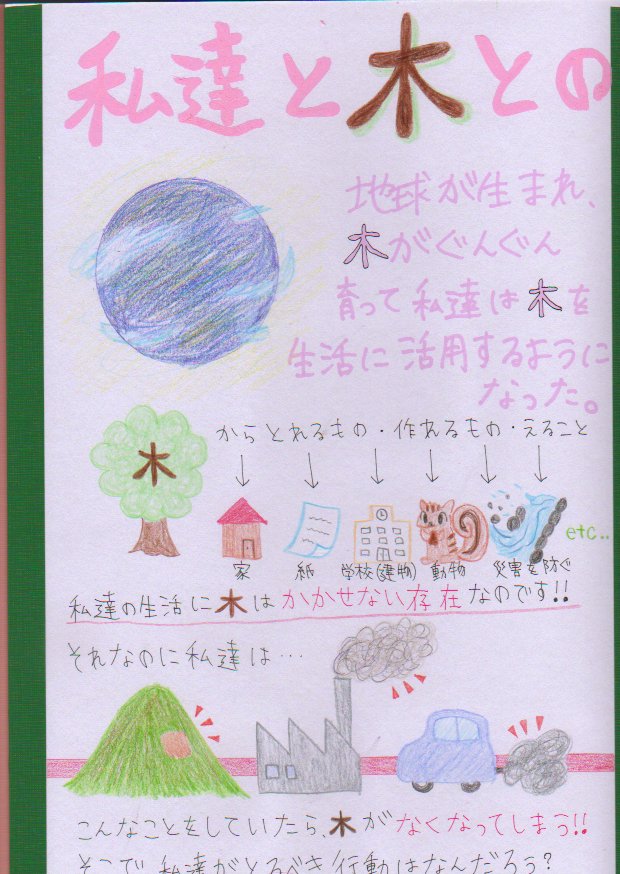 私達と木との
地球が生まれ、
木がぐんぐん
育って私達は木を
生活に活用するように
なった。
木からとれるもの・作れるもの・えること
家 紙 学校(建物) 動物 災害を防ぐ etc..
私達の生活に木はかかせない存在なのです!!
それなのに私達は…
こんなことをしていたら、木がなくなってしまう!!
そこで、私達がとるべき行動はなんだろう?